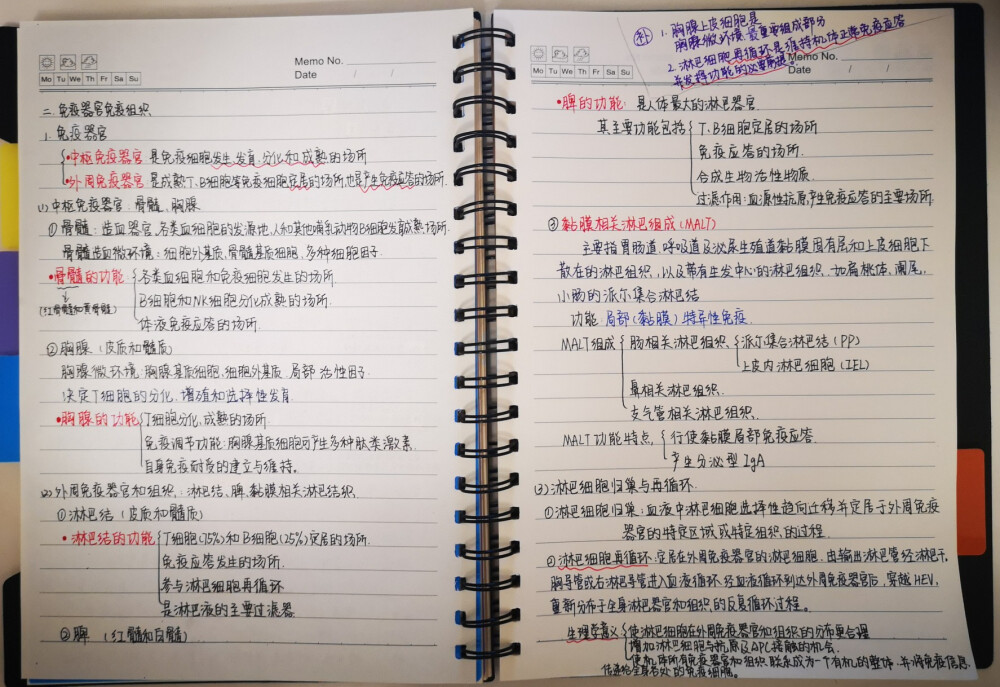 Memo No.
Mo Tu We Th Fr Sa Su
Date / /
二.免疫器官免疫组织
1.免疫器官
•中枢免疫器官 是免疫细胞发生,发育,分化和成熟的场所
•外周免疫器官 是成熟T.B细胞等免疫细胞定居的场所,也是产生免疫应答的场所.
(1)中枢免疫器官:骨髓,胸腺
①骨髓:造血器官,各类血细胞的发源地,人和其他哺乳动物B细胞发育成熟场所.
骨髓造血微环境:细胞外基质,骨髓基质细胞,多种细胞因子.
•骨髓的功能 各类血细胞和免疫细胞发生的场所.
(红骨髓和黄骨髓) B细胞和NK细胞分化成熟的场所.
体液免疫应答的场所.
②胸腺(皮质和髓质)
胸腺微环境:胸腺基质细胞,细胞外基质,局部活性因子.
决定T细胞的分化,增殖和选择性发育.
•胸腺的功能 T细胞分化,成熟的场所.
免疫调节功能:胸腺基质细胞可产生多种肽类激素.
自身免疫耐受的建立与维持。
(2)外周免疫器官和组织:淋巴结、脾、黏膜相关淋巴组织.
①淋巴结(皮质和髓质)
•淋巴结的功能 T细胞(75%)和B细胞(25%)定居的场所.
免疫应答发生的场所.
参与淋巴细胞再循环
是淋巴液的主要过滤器
②脾 (红髓和白髓)
补 1.胸腺上皮细胞是
胸腺微环境最重要组成部分
2.淋巴细胞再循环是维持机体正常免疫应答
并发挥功能的必要前提。
Memo No.
Mo Tu We Th Fr Sa Su
Date / /
•脾的功能:是人体最大的淋巴器官
其主要功能包括 T.B细胞定居的场所
免疫应答的场所.
合成生物活性物质.
过滤作用:血源性抗原产生免疫应答的主要场所
③黏膜相关淋巴组成(MALT)
主要指胃肠道,呼吸道及泌尿生殖道黏膜固有层和上皮细胞下
散在的淋巴组织,以及带有生发中心的淋巴组织,如扁桃体,阑尾,
小肠的派尔集合淋巴结
功能:局部(黏膜)特异性免疫.
MALT组成 肠相关淋巴组织 派尔集合淋巴结(PP)
上皮内淋巴细胞(IEL)
鼻相关淋巴组织.
支气管相关淋巴组织.
MALT功能特点 行使黏膜局部免疫应答.
产生分泌型IgA
(3)淋巴细胞归巢与再循环.
①淋巴细胞归巢:血液中淋巴细胞选择性趋向迁移并定居于外周免疫
器官的特定区域或特定组织的过程
②淋巴细胞再循环:定居在外周免疫器官的淋巴细胞,由输出淋巴管经淋巴干,
胸导管或右淋巴导管进入血液循环,经血液循环到达外周免疫器官后,穿越HEV,
重新分布于全身淋巴器官和组织的反复循环过程。
生理学意义 使淋巴细胞在外周免疫器官和组织的分布更合理
增加淋巴细胞与抗原及APC接触的机会.
使机体所有免疫器官和组织联系成为一个有机的整体,并将免疫信息
传递给全身各处的免疫细胞。